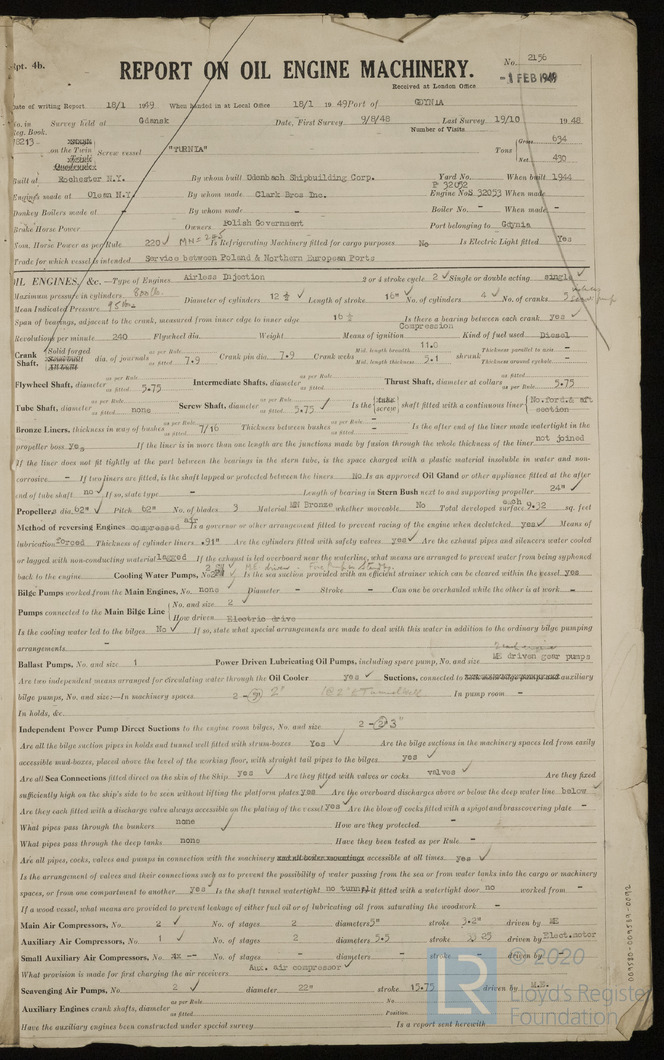 Rpt. 4b.
REPORT ON OIL ENGINE MACHINERY.
No. 2156
-1 FEB 1949
Received at London Office
Date of writing Report 18/1 1949 When handed in at Local Office 18/1 1949 Port of GDYNIA
No. in Survey held at Gdansk Date, First Survey 9/8/48 Last Survey 19/10 1948
Reg. Book. Number of Visits
8213 on the Twin Screw vessel "TURNIA" Tons Gross 634
Triple
Quadruple Net 430
Built at Rochester N.Y. By whom built Odenbach Shipbuilding Corp. Yard No. When built 1944
Engines made at Olean N.Y. By whom made Clark Bros Inc. Engine Nos P 32052 S 32053 When made
Donkey Boilers made at - By whom made - Boiler No. - When made -
Brake Horse Power Owners Polish Government Port belonging to Gdynia
Nom. Horse Power as per Rule 220 Is Refrigerating Machinery fitted for cargo purposes No Is Electric Light fitted Yes
Trade for which vessel is intended Service between Poland & Northern European Ports
OIL ENGINES, &c.—Type of Engines Airless Injection 2 or 4 stroke cycle 2 Single or double acting single
Maximum pressure in cylinders Diameter of cylinders 12 ½ Length of stroke 16" No. of cylinders 4 No. of cranks 5
Mean Indicated Pressure
Span of bearings, adjacent to the crank, measured from inner edge to inner edge 16 ½ Is there a bearing between each crank yes
Revolutions per minute 240 Flywheel dia. Weight Means of ignition Compression Kind of fuel used Diesel
Crank Shaft, Solid forged dia. of journals as per Rule as fitted 7.9 Crank pin dia. 7.9 Crank webs Mid. length breadth 11.8 Mid. length thickness 5.1 shrunk Thickness parallel to axis - Thickness around eyehole -
Flywheel Shaft, diameter as per Rule as fitted 5.75 Intermediate Shafts, diameter as per Rule as fitted Thrust Shaft, diameter at collars as per Rule as fitted 5.75
Tube Shaft, diameter as per Rule as fitted none Screw Shaft, diameter as per Rule as fitted 5.75 Is the tube screw shaft fitted with a continuous liner No. ford. & aft section
Bronze Liners, thickness in way of bushes as per Rule as fitted 7/16 Thickness between bushes as per Rule as fitted - Is the after end of the liner made watertight in the
propeller boss yes If the liner is in more than one length are the junctions made by fusion through the whole thickness of the liner not joined
If the liner does not fit tightly at the part between the bearings in the stern tube, is the space charged with a plastic material insoluble in water and non-
corrosive - If two liners are fitted, is the shaft lapped or protected between the liners No Is an approved Oil Gland or other appliance fitted at the after
end of tube shaft no If so, state type - Length of bearing in Stern Bush next to and supporting propeller 24"
Propeller, dia. 62" Pitch 62" No. of blades 3 Material MN Bronze whether moveable No Total developed surface each 9.32 sq. feet
Method of reversing Engines compressed air Is a governor or other arrangement fitted to prevent racing of the engine when declutched yes Means of
lubrication forced Thickness of cylinder liners .91" Are the cylinders fitted with safety valves yes Are the exhaust pipes and silencers water cooled
or lagged with non-conducting material lagged If the exhaust is led overboard near the waterline, what means are arranged to prevent water from being syphoned
back to the engine Cooling Water Pumps, No. Is the sea suction provided with an efficient strainer which can be cleared within the vessel yes
Bilge Pumps worked from the Main Engines, No. none Diameter - Stroke - Can one be overhauled while the other is at work -
Pumps connected to the Main Bilge Line No. and size 2
How driven Electric drive
Is the cooling water led to the bilges No If so, state what special arrangements are made to deal with this water in addition to the ordinary bilge pumping
arrangements -
Ballast Pumps, No. and size 1 Power Driven Lubricating Oil Pumps, including spare pump, No. and size ME driven gear pumps
Are two independent means arranged for circulating water through the Oil Cooler yes Suctions, connected to both main bilge pumps and auxiliary
bilge pumps, No. and size:—In machinery spaces 2 - 2" In pump room -
In holds, &c.
Independent Power Pump Direct Suctions to the engine room bilges, No. and size 2 - 3"
Are all the bilge suction pipes in holds and tunnel well fitted with strum-boxes Yes Are the bilge suctions in the machinery spaces led from easily
accessible mud-boxes, placed above the level of the working floor, with straight tail pipes to the bilges yes
Are all Sea Connections fitted direct on the skin of the Ship yes Are they fitted with valves or cocks valves Are they fixed
sufficiently high on the ship's side to be seen without lifting the platform plates yes Are the overboard discharges above or below the deep water line below
Are they each fitted with a discharge valve always accessible on the plating of the vessel yes Are the blow off cocks fitted with a spigot and brass covering plate -
What pipes pass through the bunkers none How are they protected -
What pipes pass through the deep tanks none Have they been tested as per Rule -
Are all pipes, cocks, valves and pumps in connection with the machinery and all boiler mountings accessible at all times yes
Is the arrangement of valves and their connections such as to prevent the possibility of water passing from the sea or from water tanks into the cargo or machinery
spaces, or from one compartment to another yes Is the shaft tunnel watertight no tunnel Is it fitted with a watertight door no worked from -
If a wood vessel, what means are provided to prevent leakage of either fuel oil or of lubricating oil from saturating the woodwork -
Main Air Compressors, No. 2 No. of stages 2 diameters 5" stroke 3.2" driven by ME
Auxiliary Air Compressors, No. 1 No. of stages 2 diameters 5.5 stroke 25 driven by Elect. motor
Small Auxiliary Air Compressors, No. -- No. of stages - diameters - stroke - driven by -
What provision is made for first charging the air receivers Aux. air compressor
Scavenging Air Pumps, No 2 diameter 22" stroke 15.75 driven by M.E.
Auxiliary Engines crank shafts, diameter as per Rule as fitted No. Position
Have the auxiliary engines been constructed under special survey Is a report sent herewith
003580-003589-0092
LR
© 2020
Lloyd's Register
Foundation